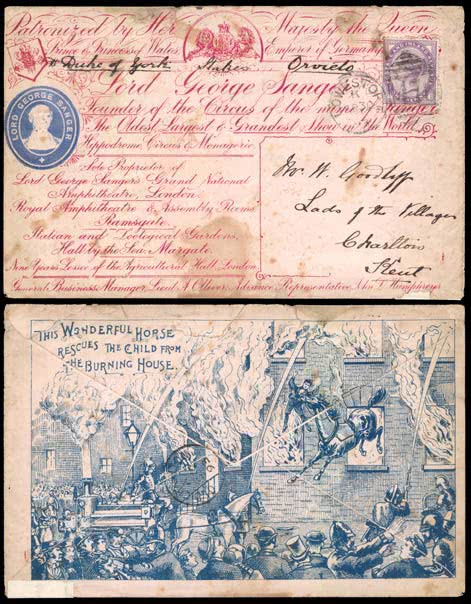 Patronized by Her Majesty the Queen
Prince & Princess of Wales Emperor of Germany
Duke of York Stakes Orvieto
Lord George Sanger
LORD GEORGE SANGER
Founder of the Circus of the name Sanger
The Oldest Largest & Grandest Show in the World.
Hippodrome Circus & Menagerie
Sole Proprietor of
Lord George Sanger's Grand National
Amphitheatre, London.
Royal Amphitheatre & Assembly Rooms
Ramsgate.
Italian and Zoological Gardens,
Hall by the Sea Margate.
Nine Years Lessee of the Agricultural Hall London.
General Business Manager, Advance Representative John Humphreys
Mr. W.
Lads of the Village
Charlton
Kent
THIS WONDERFUL HORSE
RESCUES THE CHILD FROM
THE BURNING HOUSE.